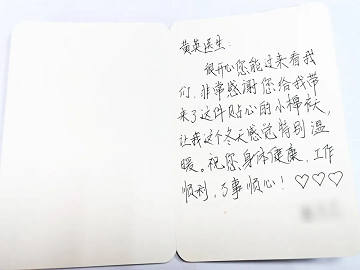 黄英医生：
很开心您能过来看我
们，非常感谢您给我带
来了这件贴心的小棉袄，
让我这个冬天感觉特别温
暖。祝您身体健康，工作
顺利，万事顺心！♡♡♡